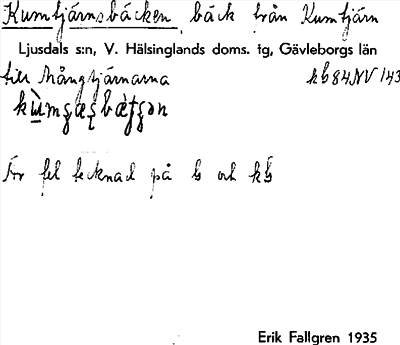 Kumtjärnsbäcken, bäck från Kumtjärn
Ljusdals s:n, V. Hälsinglands doms. tg, Gävleborgs län
till Mångtjärnarna kb 84 NV 143
Är fel tecknad på b och kb
Erik Fallgren 1935